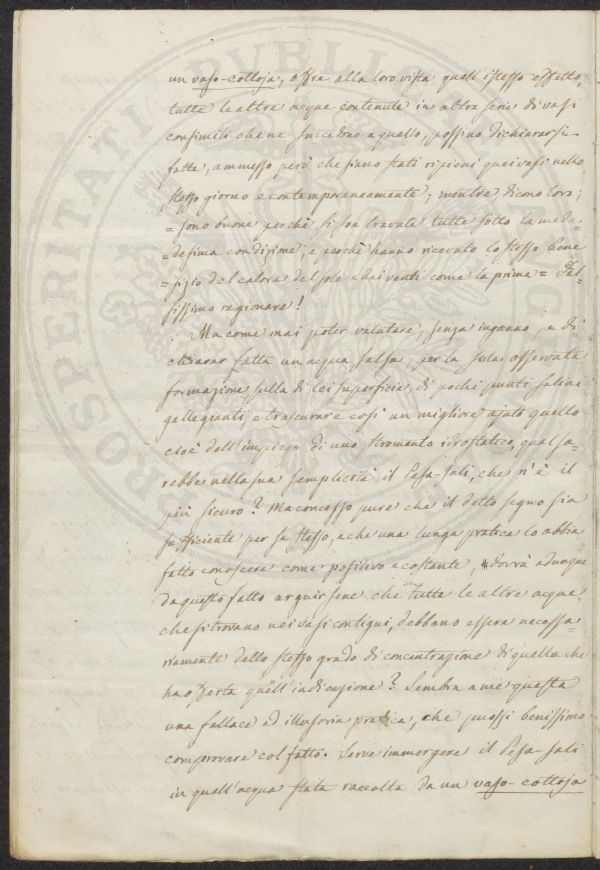 un vaso-cottoja, offre alla loro vista quell'istesso effetto,
tutte le altre acque contenute in altra serie di vasi
consimili che ne succedono a quello, possino dichiararsi
fatte, ammesso però che siano stati ripieni quei vasi nello
stesso giorno e contemporaneamente; mentre dicono loro;
= sono buone perchè si son trovate tutte sotto la mede-
= desima condizione, e perchè hanno ricevuto lo stesso bene
= fizio del calore del sole e dei venti come la prima = Fal-
sissimo ragionare!
Ma come mai poter valutare, senza inganno, e di-
chiarar fatta un'acqua salsa, per la sola osservata
formazione sulla di lei superficie, di pochi punti salini
galleggianti, e trascurare così un migliore ajuto quello
cioè dell'impiego di uno stromento idrostatico, qual sa-
rebbe nella sua semplicità il Pesa-sali, che n'è il
più sicuro? Ma concesso pure che il detto segno sia
sufficiente per se stesso, e che una lunga pratica lo abbia
fatto conoscere come positivo e costante, dovrà adunque
da questo fatto arguirsene che tutte le altre acque
che si trovano nei vasi contigui, debbano essere necessa-
riamente dello stesso grado di concentrazione di quella che
ha offerta quell'indicazione? Sembra a me questa
una fallace ed illusoria pratica, che puossi benissimo
comprovare col fatto. Serve immergere il Pesa-sali
in quell'acqua stata raccolta da un vaso-cottoja
PROSPERITATI PUBLICAE AUGE